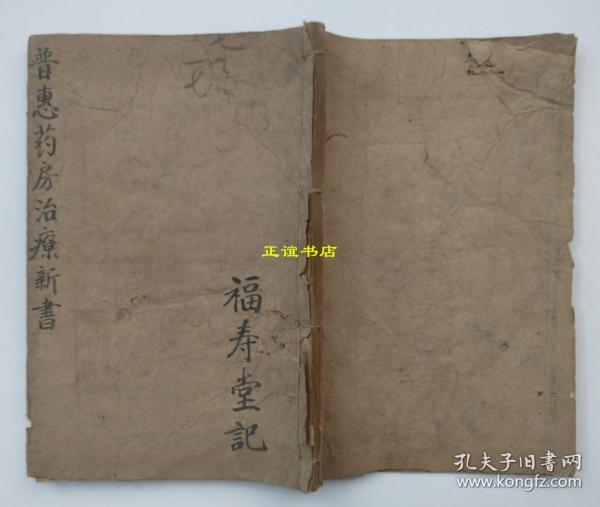 普惠药房治療新書
福寿堂記
正谊书店
孔夫子旧书网
www.kongfz.com